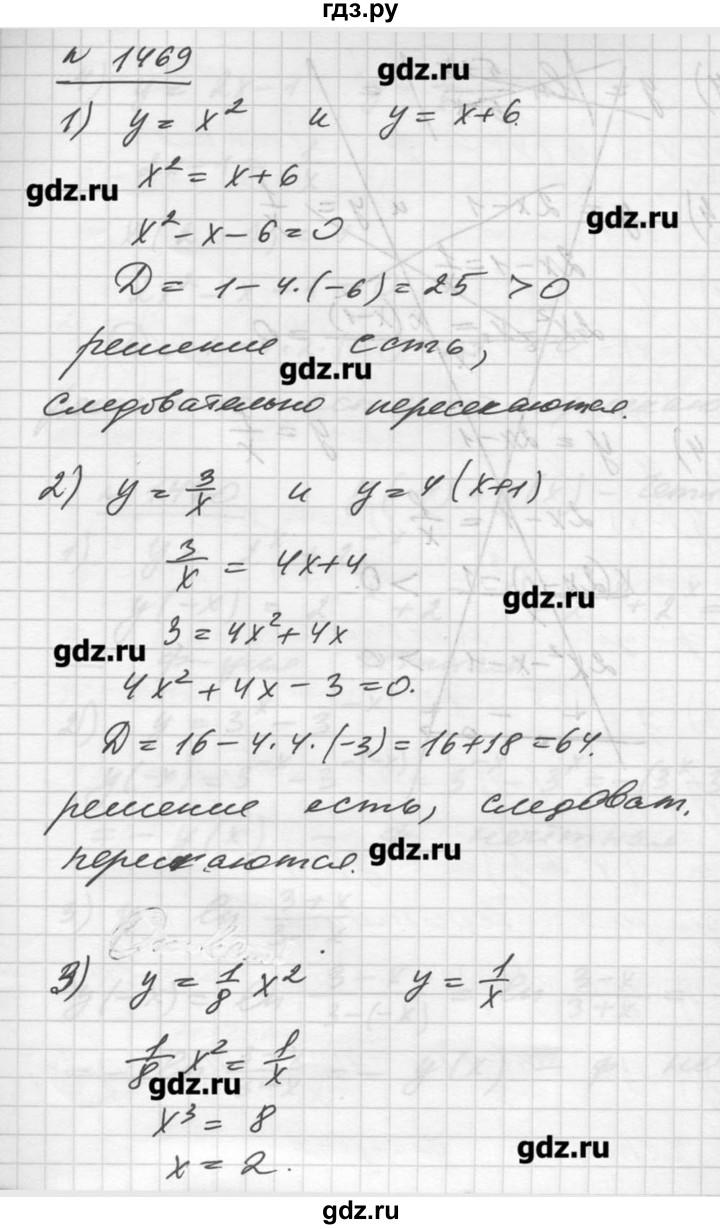 гдз.ру
N 1469
gdz.ru
1) y = x² и y = x+6.
x² = x+6
gdz.ru
gdz.ru
x² - x - 6 = 0
D = 1 - 4·(-6) = 25 > 0
решение есть,
gdz.ru
следовательно пересекаются.
2) y = 3/x и y = 4(x+1)
3/x = 4x+4
gdz.ru
3 = 4x² + 4x
gdz.ru
4x² + 4x - 3 = 0.
D = 16 - 4·4·(-3) = 16+18 = 64.
решение есть, следоват.
пересекаются.
gdz.ru
3) y = 1/8 x² y = 1/x
1/8 x² = 1/x
gdz.ru
x³ = 8
gdz.ru
x = 2.
gdz.ru